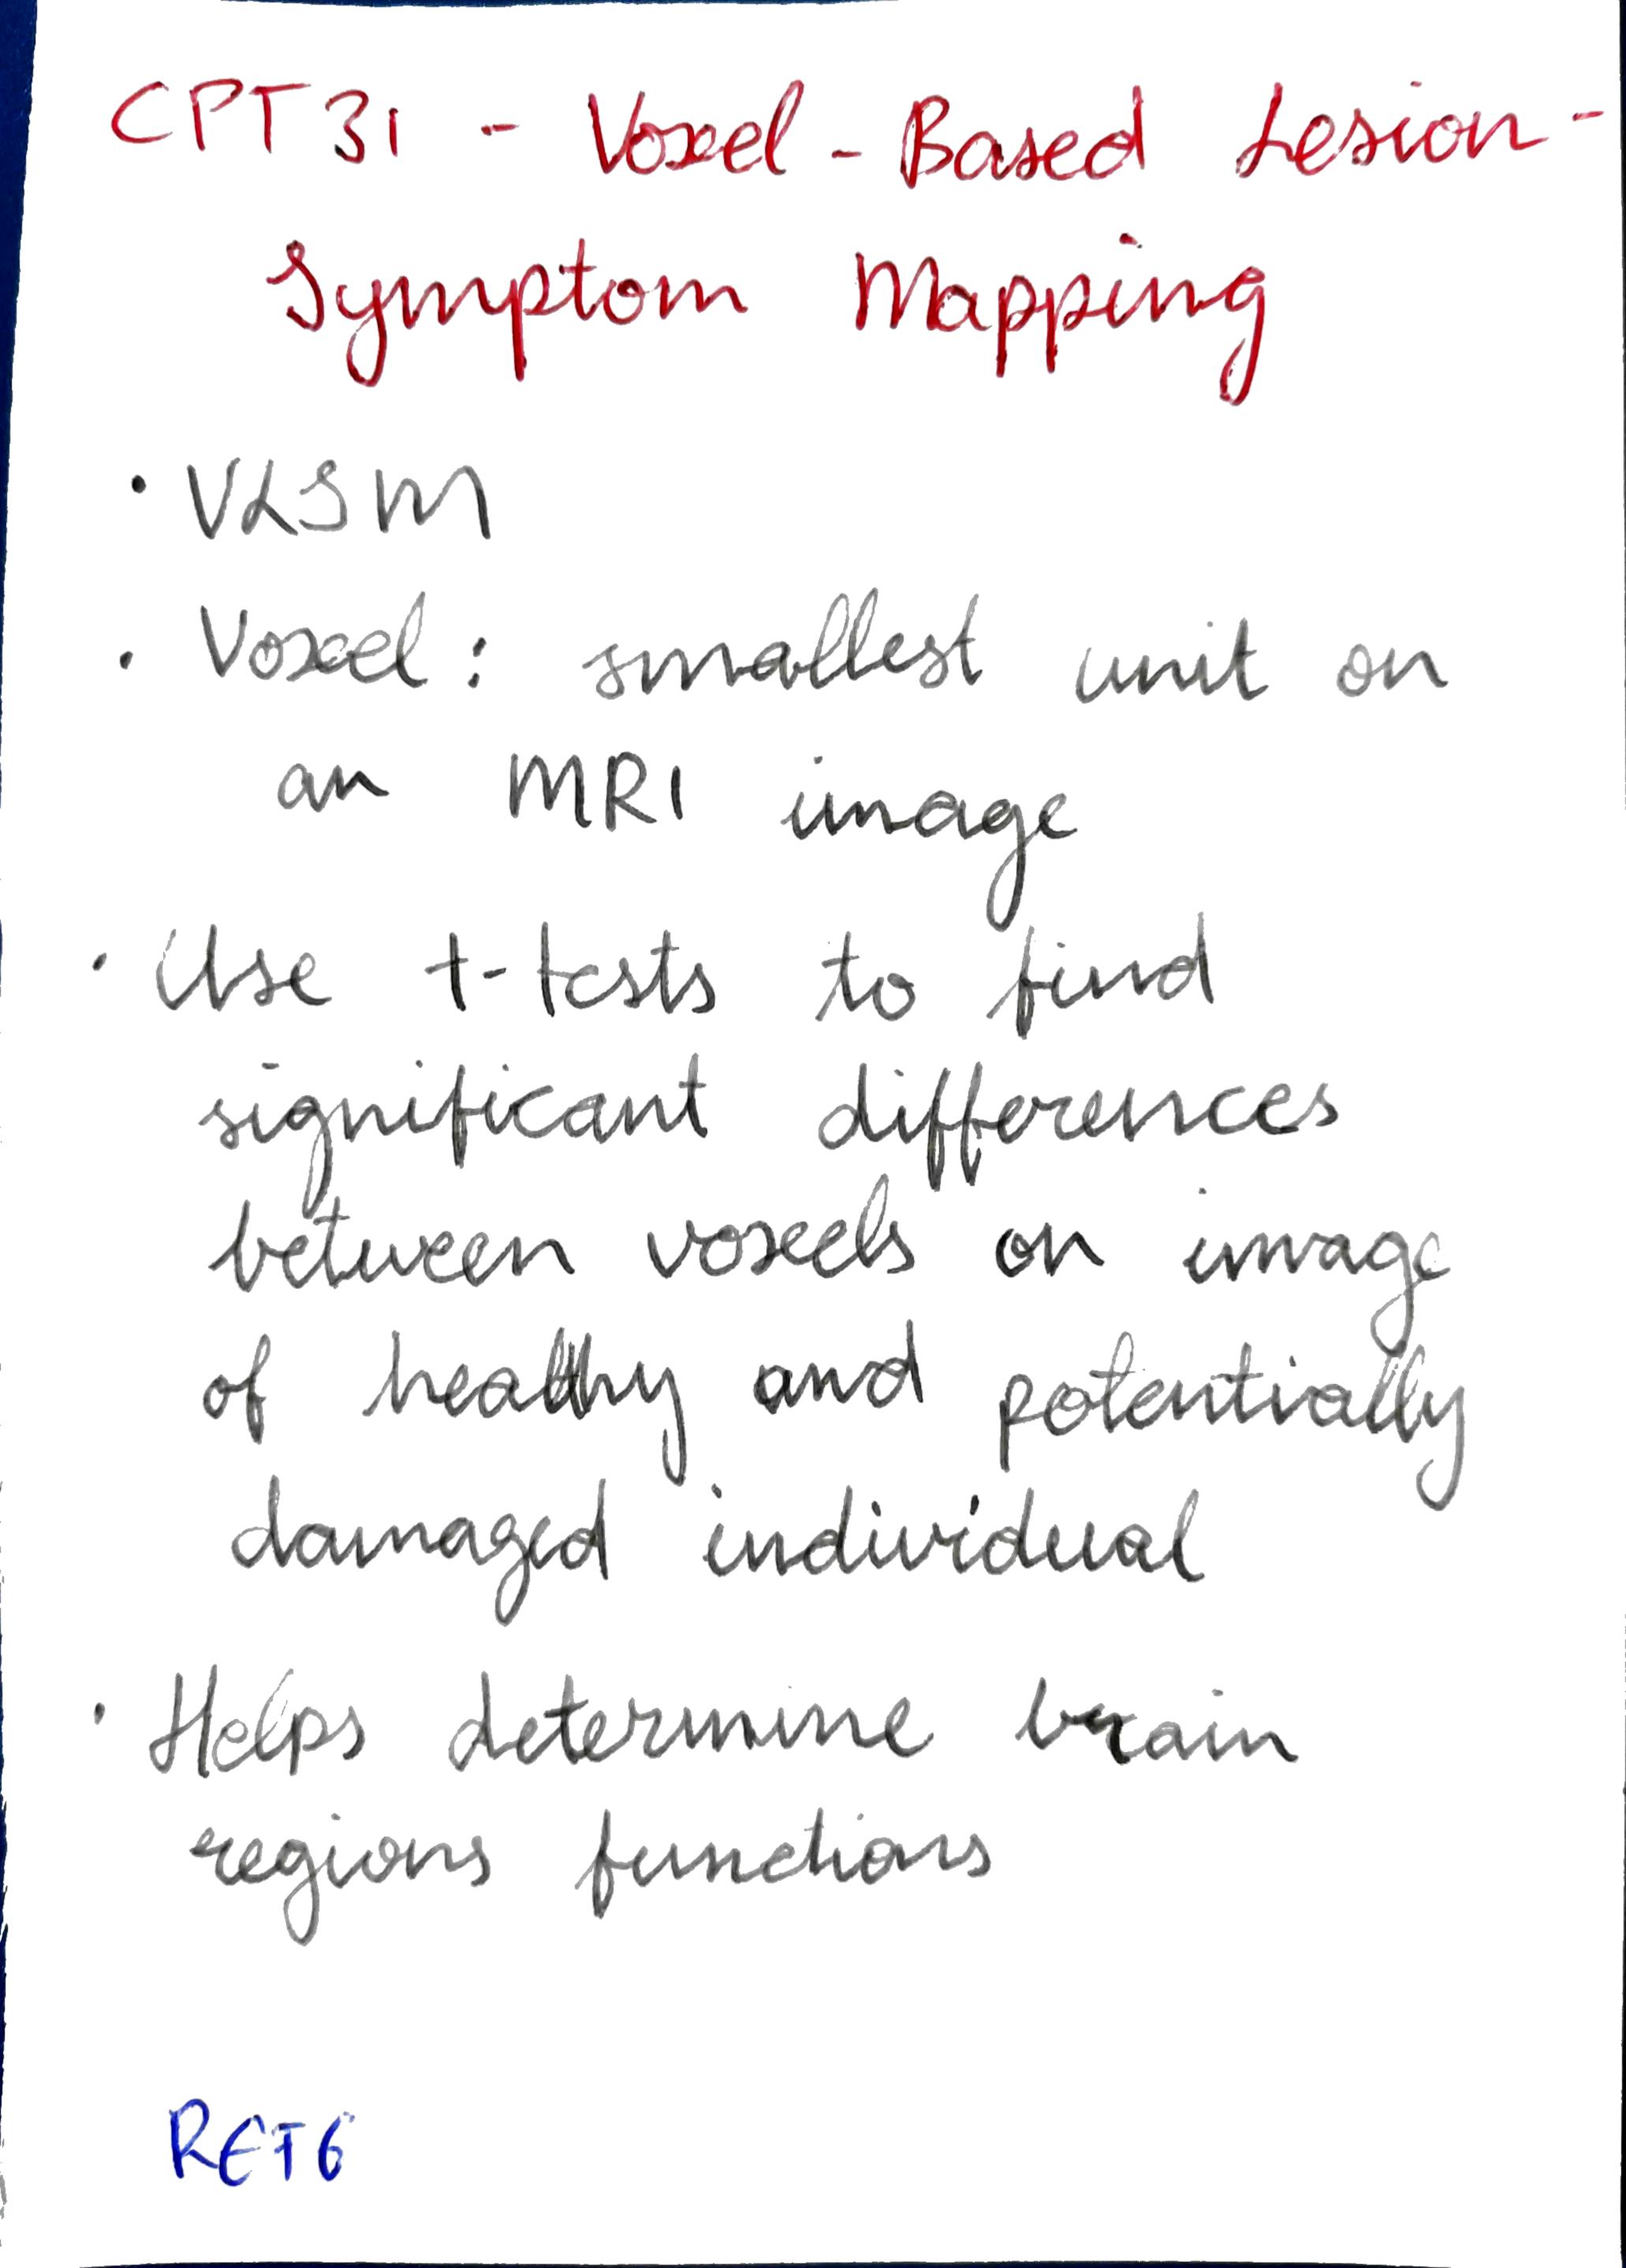 CPT 31 - Voxel-Based Lesion-
Symptom Mapping
· VLSM
· Voxel: smallest unit on
an MRI image
· Use t-tests to find
significant differences
between voxels on image
of healthy and potentially
damaged individual
· Helps determine brain
regions functions
REF6